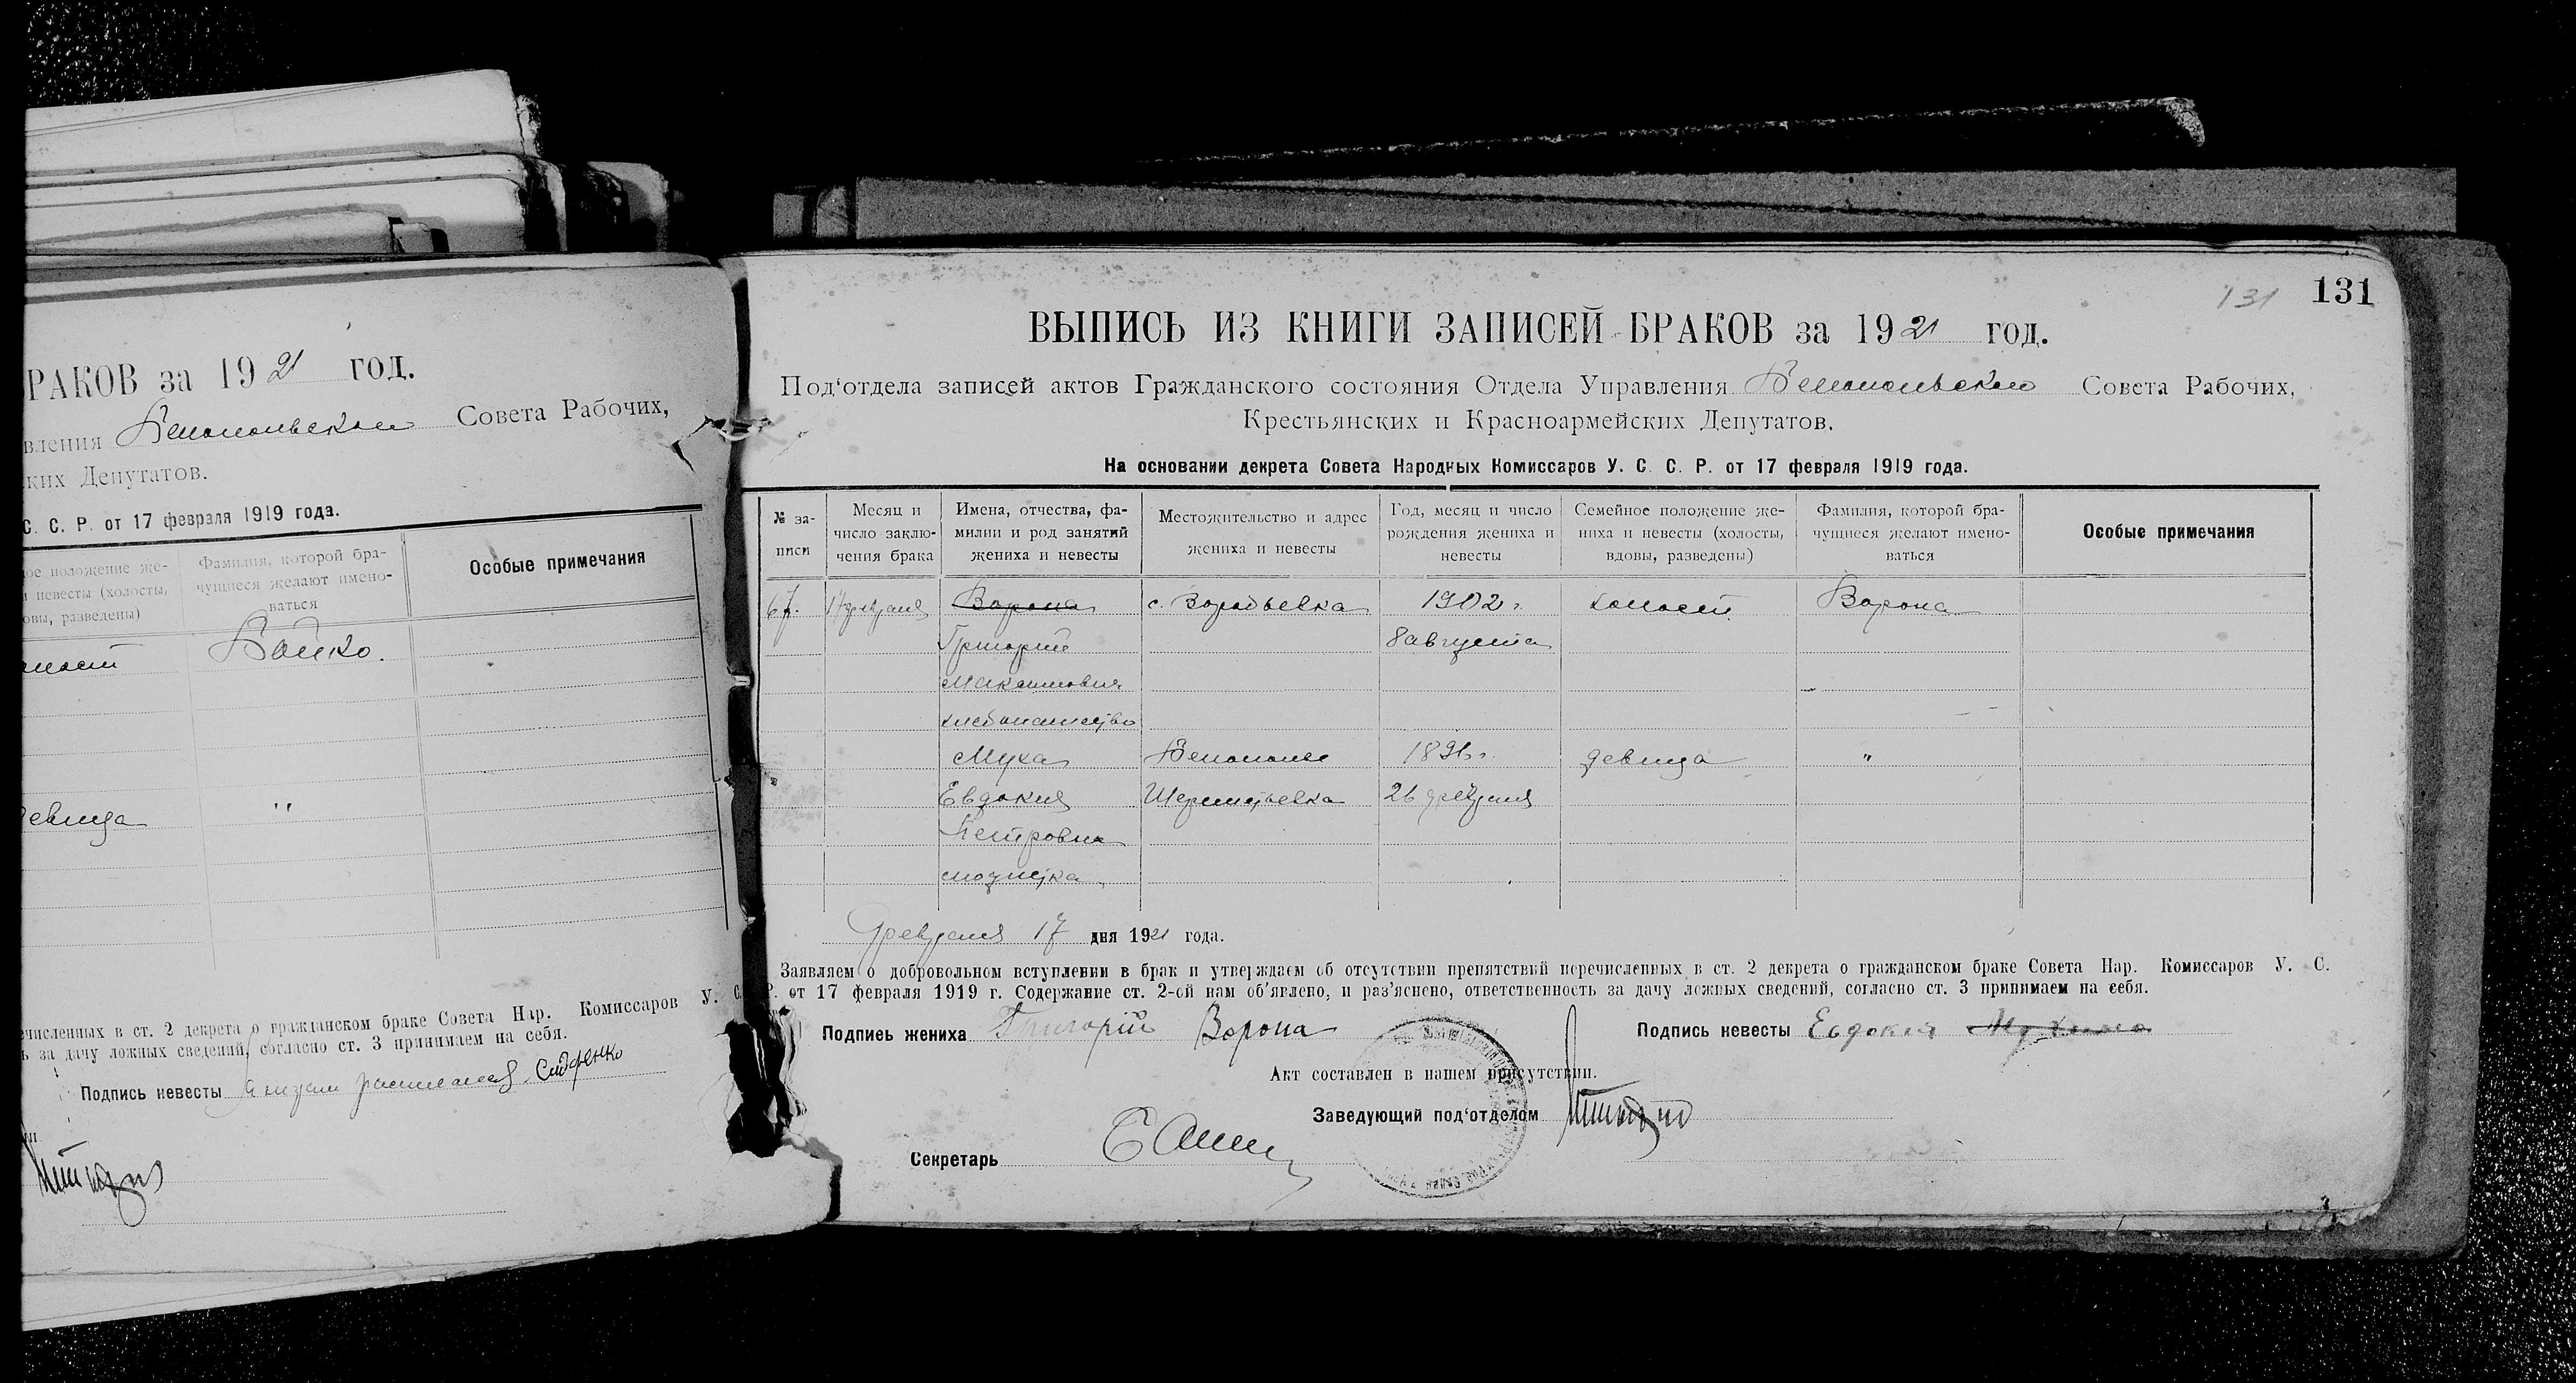 РАКОВ за 1921 год.
вления Белопольского Совета Рабочих,
ких Депутатов.
С. С. Р. от 17 февраля 1919 года.
ое положение же-
и невесты (холосты,
овы, разведены)
Фамилия, которой бра-
чущиеся желают имено-
ваться
Особые примечания
лост
Бойко.
девица
"
численных в ст. 2 декрета о гражданском браке Совета Нар. Комиссаров У. С.
ь за дачу ложных сведений, согласно ст. 3 принимаем на себя.
Подпись невесты
131
131
ВЫПИСЬ ИЗ КНИГИ ЗАПИСЕЙ БРАКОВ за 1921 год.
Под'отдела записей актов Гражданского состояния Отдела Управления Белопольского Совета Рабочих,
Крестьянских и Красноармейских Депутатов.
На основании декрета Совета Народных Комиссаров У. С. С. Р. от 17 февраля 1919 года.
№ за-
писи
Месяц и
число заклю-
чения брака
Имена, отчества, фа-
милии и род занятий
жениха и невесты
Местожительство и адрес
жениха и невесты
Год, месяц и число
рождения жениха и
невесты
Семейное положение же-
ниха и невесты (холосты,
вдовы, разведены)
Фамилия, которой бра-
чущиеся желают имено-
ваться
Особые примечания
67. 17 февраля Ворона с. Воробьевка 1902 г. холост Ворона
Григорий 8 августа
Максимович
хлебопашество
Муха Белополье 1896 г. девица "
Евдокия 26 февраля
Петровна
модистка
Февраля 17 дня 1921 года.
Заявляем о добровольном вступлении в брак и утверждаем об отсутствии препятствий перечисленных в ст. 2 декрета о гражданском браке Совета Нар. Комиссаров У. С.
Р. от 17 февраля 1919 г. Содержание ст. 2-ой нам об'явлено, и раз'яснено, ответственность за дачу ложных сведений, согласно ст. 3 принимаем на себя.
Подпись жениха Григорій Ворона Подпись невесты Евдокия
Акт составлен в нашем присутствии.
Заведующий под'отделом
Секретарь